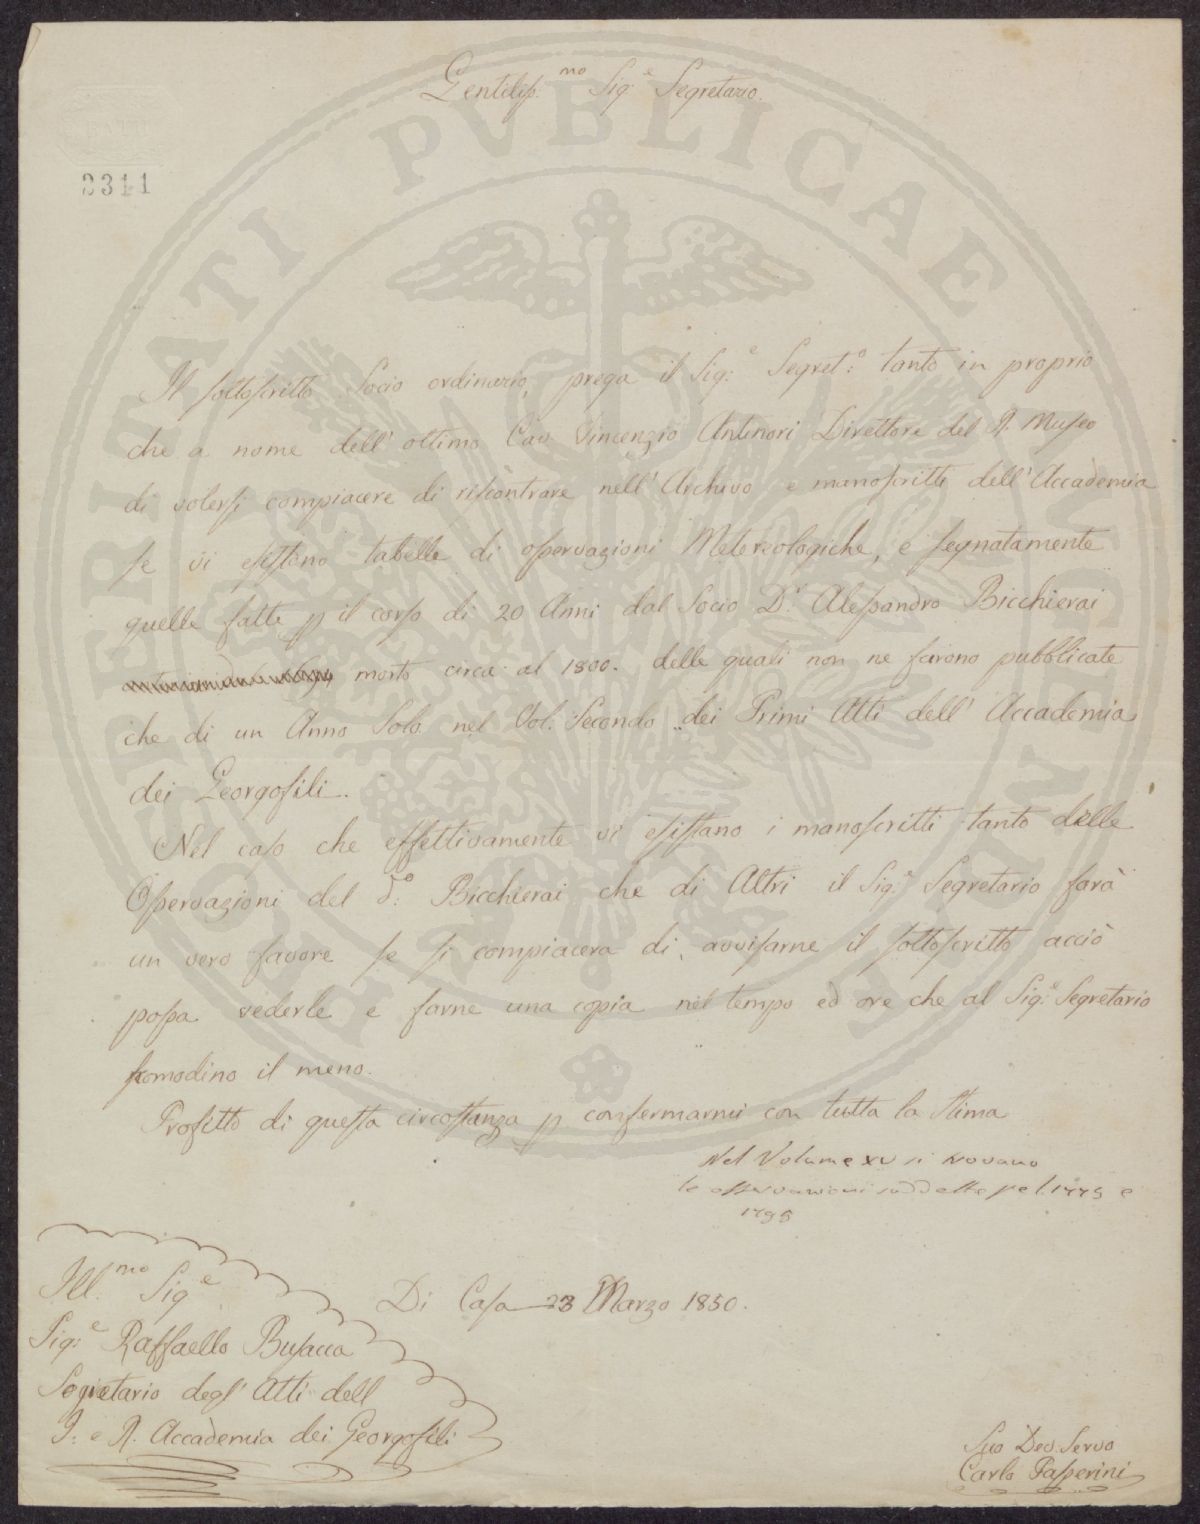 Gentiliss.mo Sig.e Segretario.
2311
Il sottoscritto Socio ordinario, prega il Sig.e Segret.o tanto in proprio
che a nome dell' ottimo Cav Vincenzio Antinori Direttore del R. Museo
di volersi compiacere di riscontrare nell' Archivo e manoscritti dell' Accademia
se vi esistono tabelle di osservazioni Metereologiche, e segnatamente
quelle fatte p il corso di 20 Anni dal Socio D.r Alessandro Bicchierai
morto circa al 1800. delle quali non ne furono pubblicate
che di un Anno Solo nel Vol. Secondo dei Primi Atti dell' Accademia
dei Georgofili.
Nel caso che effettivamente vi esistano i manoscritti tanto delle
Osservazioni del D.o Bicchierai che di Altri il Sig.e Segretario farà
un vero favore se si compiacera di avvisarne il sottoscritto acciò
possa vederle e farne una copia nel tempo ed ore che al Sig.e Segretario
scomodino il meno.
Profitto di questa circostanza p confermarmi con tutta la stima
Nel Volume XV si trovano
le osservazioni suddette pel 1775 e
1795
Di Casa 23 Marzo 1850.
Ill.mo Sig.e
Sig.e Raffaello Busacca
Segretario degl' Atti dell
I. e R. Accademia dei Georgofili
Suo Dev. Servo
Carlo Passerini
PROSPERITATI PVBLICAE AVGENDAE